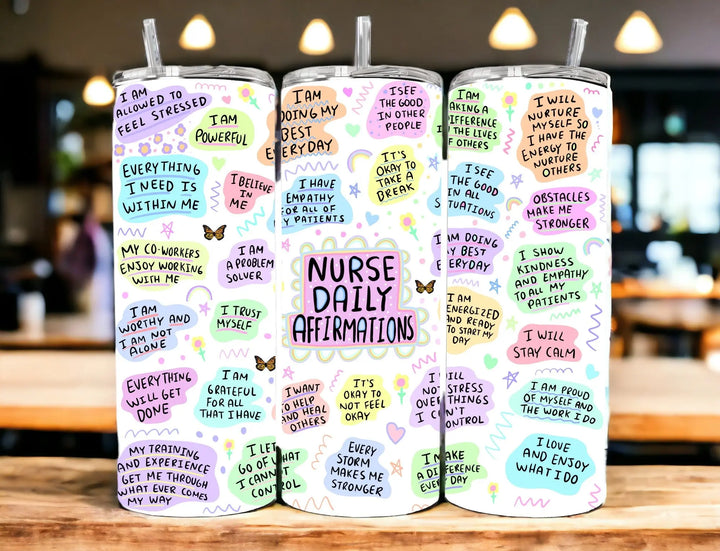 I AM
ALLOWED TO
FEEL STRESSED
I AM
POWERFUL
EVERYTHING
I NEED IS
WITHIN ME
I BELIEVE
IN
ME
MY CO-WORKERS
ENJOY WORKING
WITH ME
I AM
A PROBLEM
SOLVER
I AM
WORTHY AND
I AM NOT
ALONE
I TRUST
MYSELF
EVERYTHING
WILL GET
DONE
I AM
GRATEFUL
FOR ALL
THAT I HAVE
MY TRAINING
AND EXPERIENCE
GET ME THROUGH
WHAT EVER COMES
MY WAY
I LET
GO OF WHAT
I CANNOT
CONTROL
I AM
DOING MY
BEST
EVERYDAY
I SEE
THE GOOD
IN OTHER
PEOPLE
IT'S
OKAY TO
TAKE A
BREAK
I HAVE
EMPATHY
FOR ALL OF
MY PATIENTS
NURSE
DAILY
AFFIRMATIONS
I WANT
TO HELP
AND HEAL
OTHERS
IT'S
OKAY TO
NOT FEEL
OKAY
EVERY
STORM
MAKES ME
STRONGER
I AM
MAKING A
DIFFERENCE
THE LIVES
OF OTHERS
I WILL
NURTURE
MYSELF SO
I HAVE THE
ENERGY TO
NURTURE
OTHERS
I SEE
THE GOOD
IN ALL
SITUATIONS
OBSTACLES
MAKE ME
STRONGER
I AM DOING
MY BEST
EVERYDAY
I SHOW
KINDNESS
AND EMPATHY
TO ALL MY
PATIENTS
I AM
ENERGIZED
AND READY
TO START MY
DAY
I WILL
STAY CALM
I WILL
NOT STRESS
OVER THINGS
I CAN'T
CONTROL
I AM PROUD
OF MYSELF AND
THE WORK I DO
I MAKE
A DIFFERENCE
EVERY DAY
I LOVE
AND ENJOY
WHAT I DO